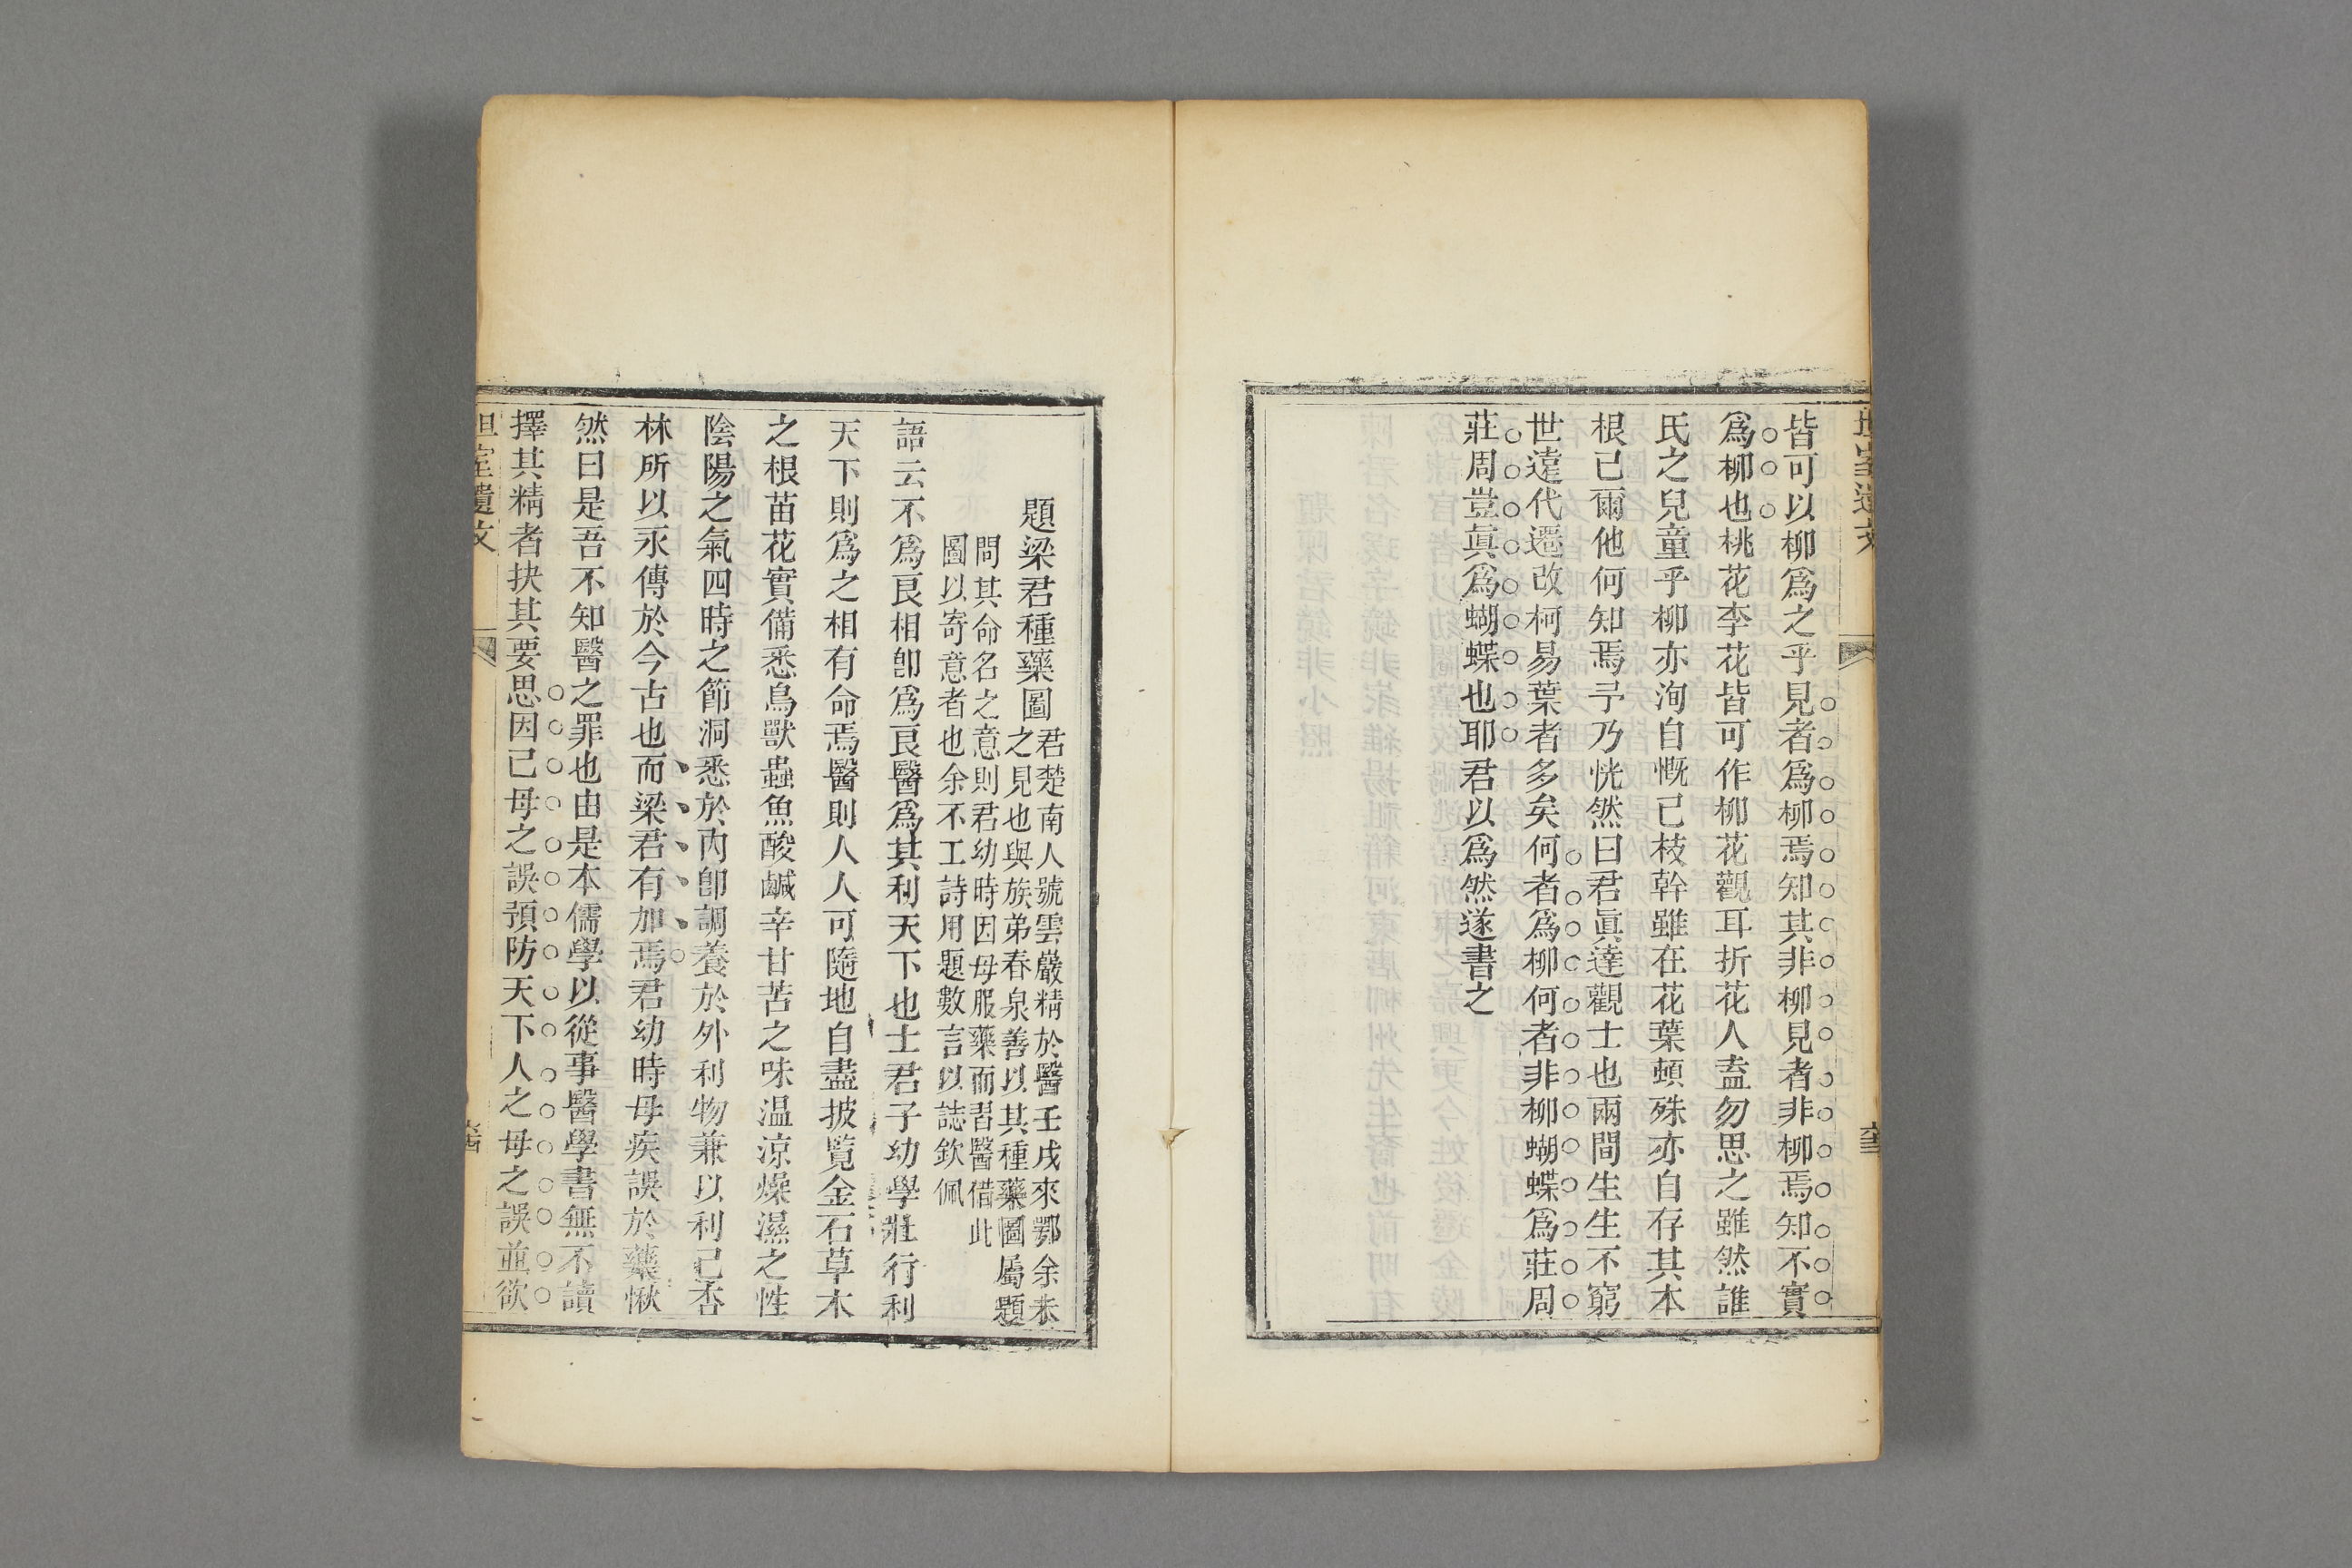 皆可以柳爲之乎見者爲柳焉知其非柳見者非柳焉知不實
爲柳也桃花李花皆可作柳花觀耳折花人盍勿思之雖然誰
氏之兒童乎柳亦洵自慨已枝幹雖在花葉頓殊亦自存其本
根已爾他何知焉予乃恍然曰君眞達觀士也兩間生生不窮
世遠代遷改柯易葉者多矣何者爲柳何者非柳蝴蝶爲莊周
莊周豈眞爲蝴蝶也耶君以爲然遂書之
題梁君種藥圖
君楚南人號雲巖精於醫壬戌來鄂余未
之見也與族弟春泉善以其種藥圖屬題
問其命名之意則君幼時因母服藥而習醫借此
圖以寄意者也余不工詩用題數言以誌欽佩
語云不爲良相卽爲良醫爲其利天下也士君子幼學壯行利
天下則爲之相有命焉醫則人人可隨地自盡披覧金石草木
之根苗花實備悉鳥獸蟲魚酸鹹辛甘苦之味温涼燥濕之性
陰陽之氣四時之節洞悉於內卽調養於外利物兼以利己杏
林所以永傳於今古也而梁君有加焉君幼時母疾誤於藥愀
然曰是吾不知醫之罪也由是本儒學以從事醫學書無不讀
擇其精者抉其要思因己母之誤預防天下人之母之誤並欲
室遺文